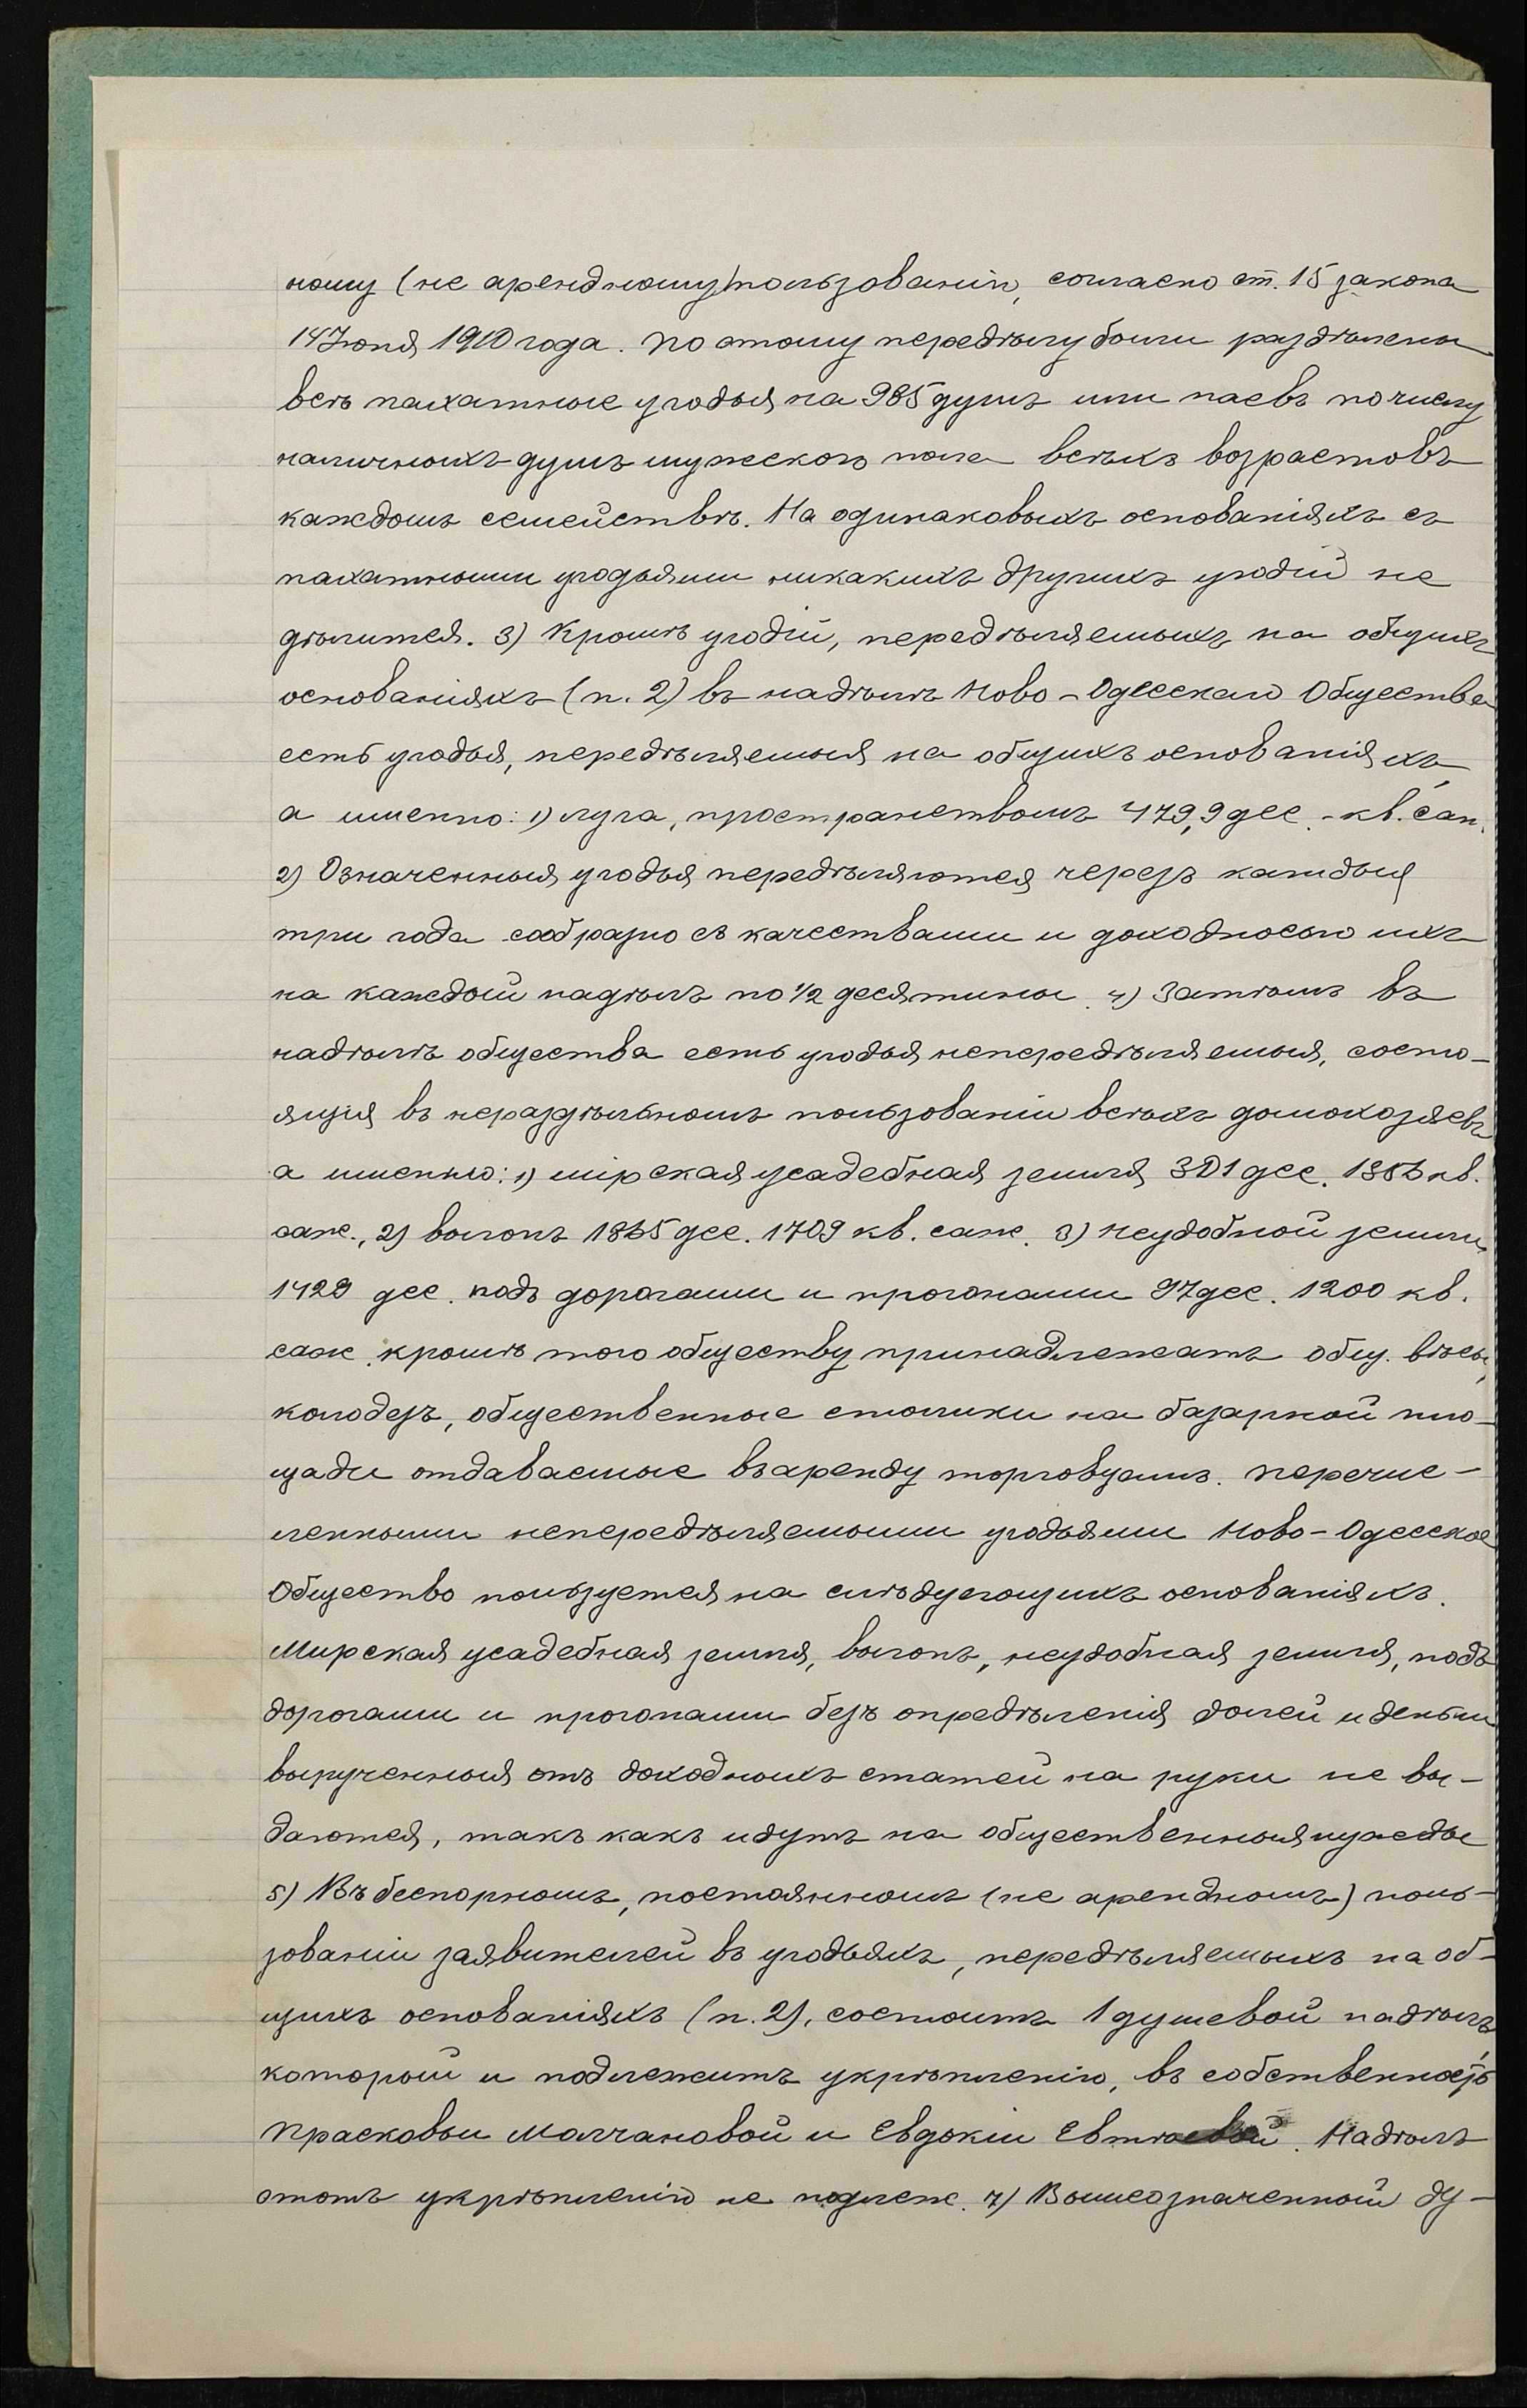 ному (не арендному) пользованію, согласно ст. 15 закона
14 Іюня 1910 года. По этому передѣлу были раздѣлены
всѣ пахатные угодья на 985 душъ или паевъ по числу
наличныхъ душъ мужеского пола всѣхъ возрастовъ
каждомъ семействѣ. На одинаковыхъ основаніяхъ съ
пахатными угодьями никакихъ другихъ угодій не
дѣлится. 3) Кромѣ угодій, передѣляемыхъ на общихъ
основаніяхъ (п. 2) въ надѣлѣ Ново-Одесскаго Общества
есть угодья, передѣляемыя на общихъ основаніяхъ,
а именно: 1) луга, пространствомъ 479,9 дес. - кв. саж.
2) Означенныя угодья передѣляются черезъ каждыя
три года сообразно съ качествами и доходносью ихъ
на каждый надѣлъ по ½ десятины. 4) Затѣмъ въ
надѣлѣ общества есть угодья непередѣляемыя, состо-
ящія въ нераздѣльномъ пользованіи всѣхъ домохозяевъ
а именно: 1) мірская усадебная земля 301 дес. 1386 кв.
саж., 2) выгонъ 1865 дес. 1709 кв. саж. 3) неудобной земли
1429 дес. подъ дорогами и прогонами 97 дес. 1200 кв.
саж. кромѣ того обществу принадлежатъ общ. вѣсы,
колодезъ, общественные столики на базарной пло-
щади отдаваемые въ аренду торговцамъ. Перечис-
ленными непередѣляемыми угодьями Ново-Одесское
Общество пользуется на слѣдующихъ основаніяхъ.
Мирская усадебная земля, выгонъ, неудобная земля, подъ
дорогами и прогонами безъ опредѣленія долей и деньги
вырученныя отъ доходныхъ статей на руки не вы-
даются, такъ какъ идутъ на общественныя нужды
5) Въ беспорномъ, постоянномъ (не арендномъ) поль-
зованіи заявителей въ угодьяхъ, передѣляемыхъ на об-
щихъ основаніяхъ (п. 2), состоитъ 1 душевой надѣлъ
который и подлежитъ укрѣпленію, въ собственность
Прасковьи Молчановой и Евдокіи . Надѣлъ
этотъ укрѣпленію не подлеж. 7) Вышеозначенной ду-